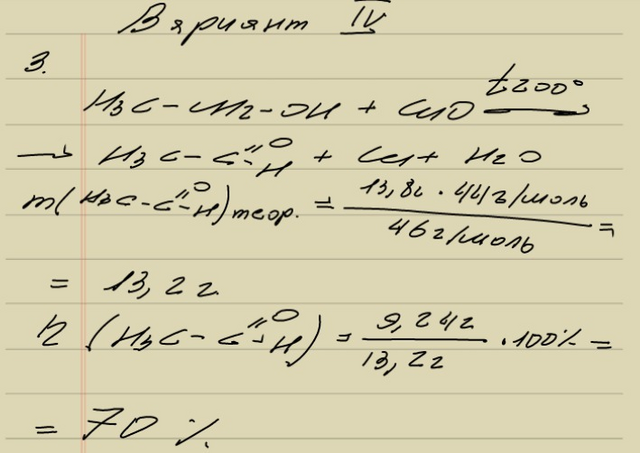 Вариант IV
3.
H3C-CH2-OH + CuO t200°
→ H3C-C=O-H + Cu + H2O
m(H3C-C=O-H)теор. = 13,8г · 44г/моль / 46г/моль =
= 13,2г
η (H3C-C=O-H) = 9,24г / 13,2г · 100% =
= 70 %